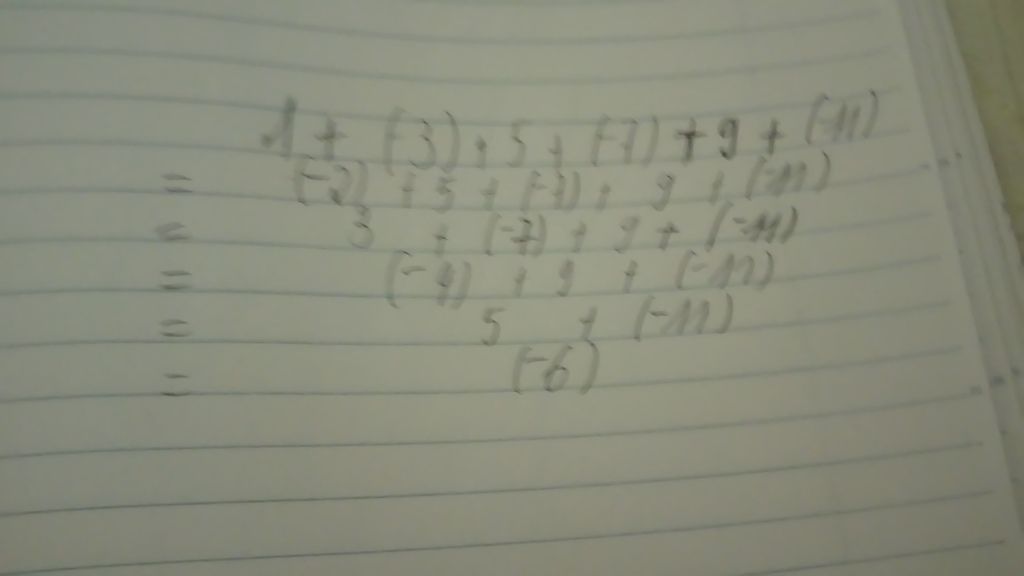 1 + (-3) + 5 + (-7) + 9 + (-11)
= (-2) + 5 + (-7) + 9 + (-11)
= 3 + (-7) + 9 + (-11)
= (-4) + 9 + (-11)
= 5 + (-11)
= (-6)